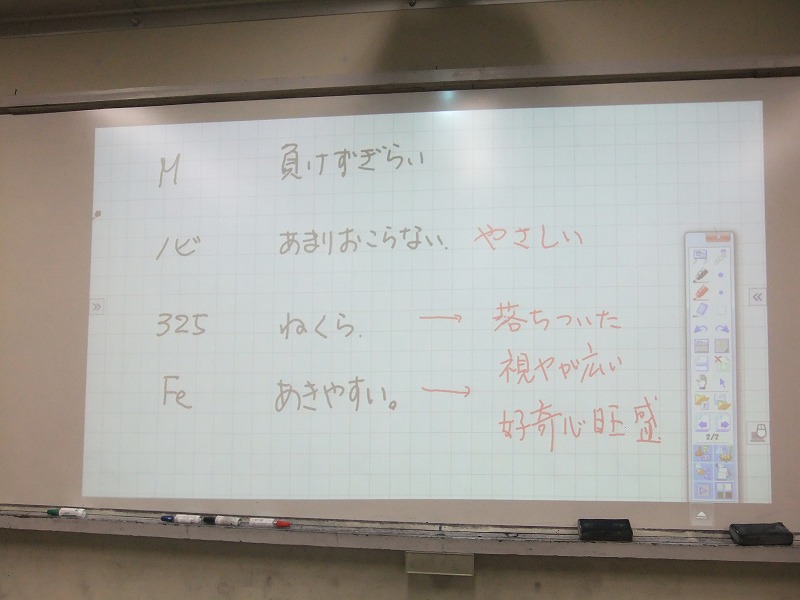 M 負けずぎらい
ノビ あまりおこらない。 やさしい
325 ねくら。 → 落ちついた
視やが広い
Fe あきやすい。 → 好奇心旺盛
2/2